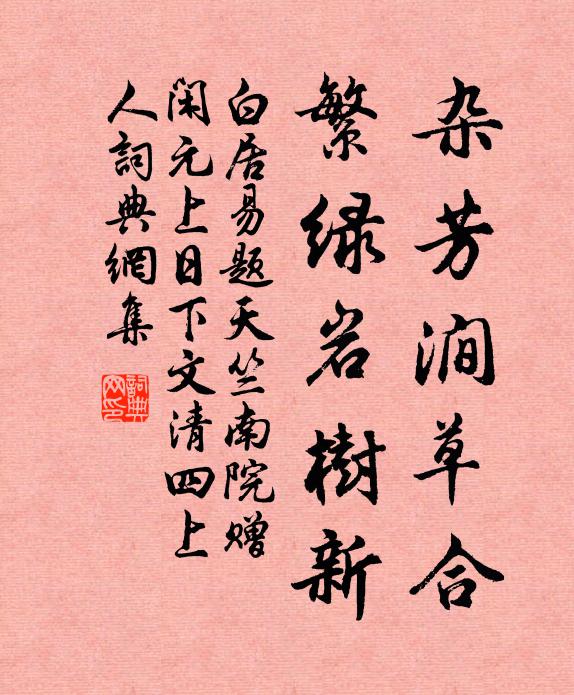 杂芳澗草合
繁緑岩樹新
白居易题天竺南院赠
闲元上日下文清四上
人詞典網集
詞典网印